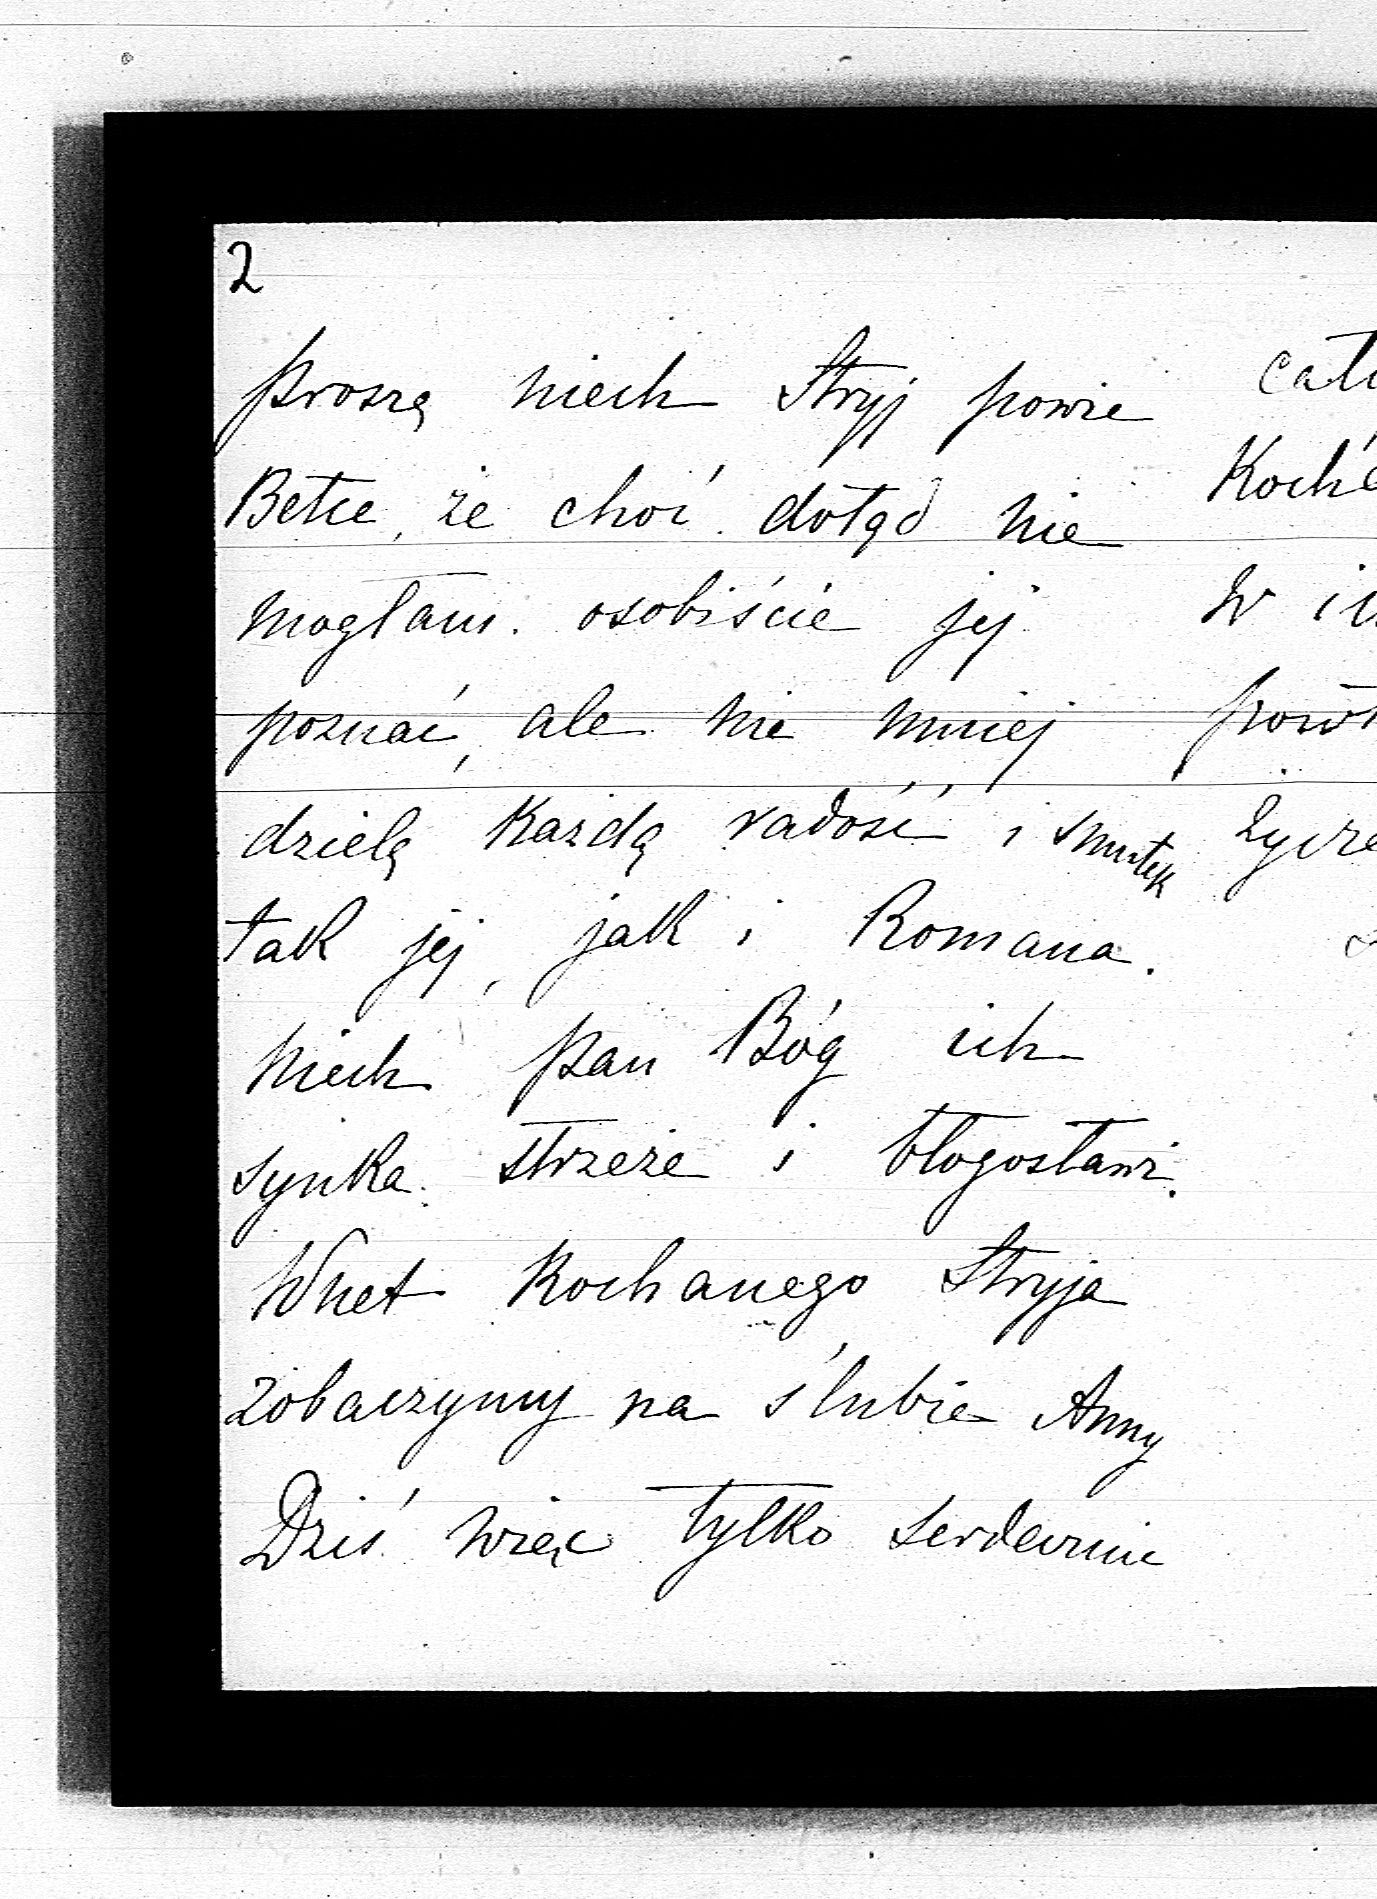 2
proszę niech Stryj powie
Betce, że choć dotąd nie
mogłam osobiście jej
poznać, ale nie mniej
dzielę każdą radość i smutek
tak jej, jak i Romana.
Niech Pan Bóg ich
synka strzeże i błogosławi.
Wnet Kochanego Stryja
zobaczymy na ślubie Anny
Dziś więc tylko serdecznie